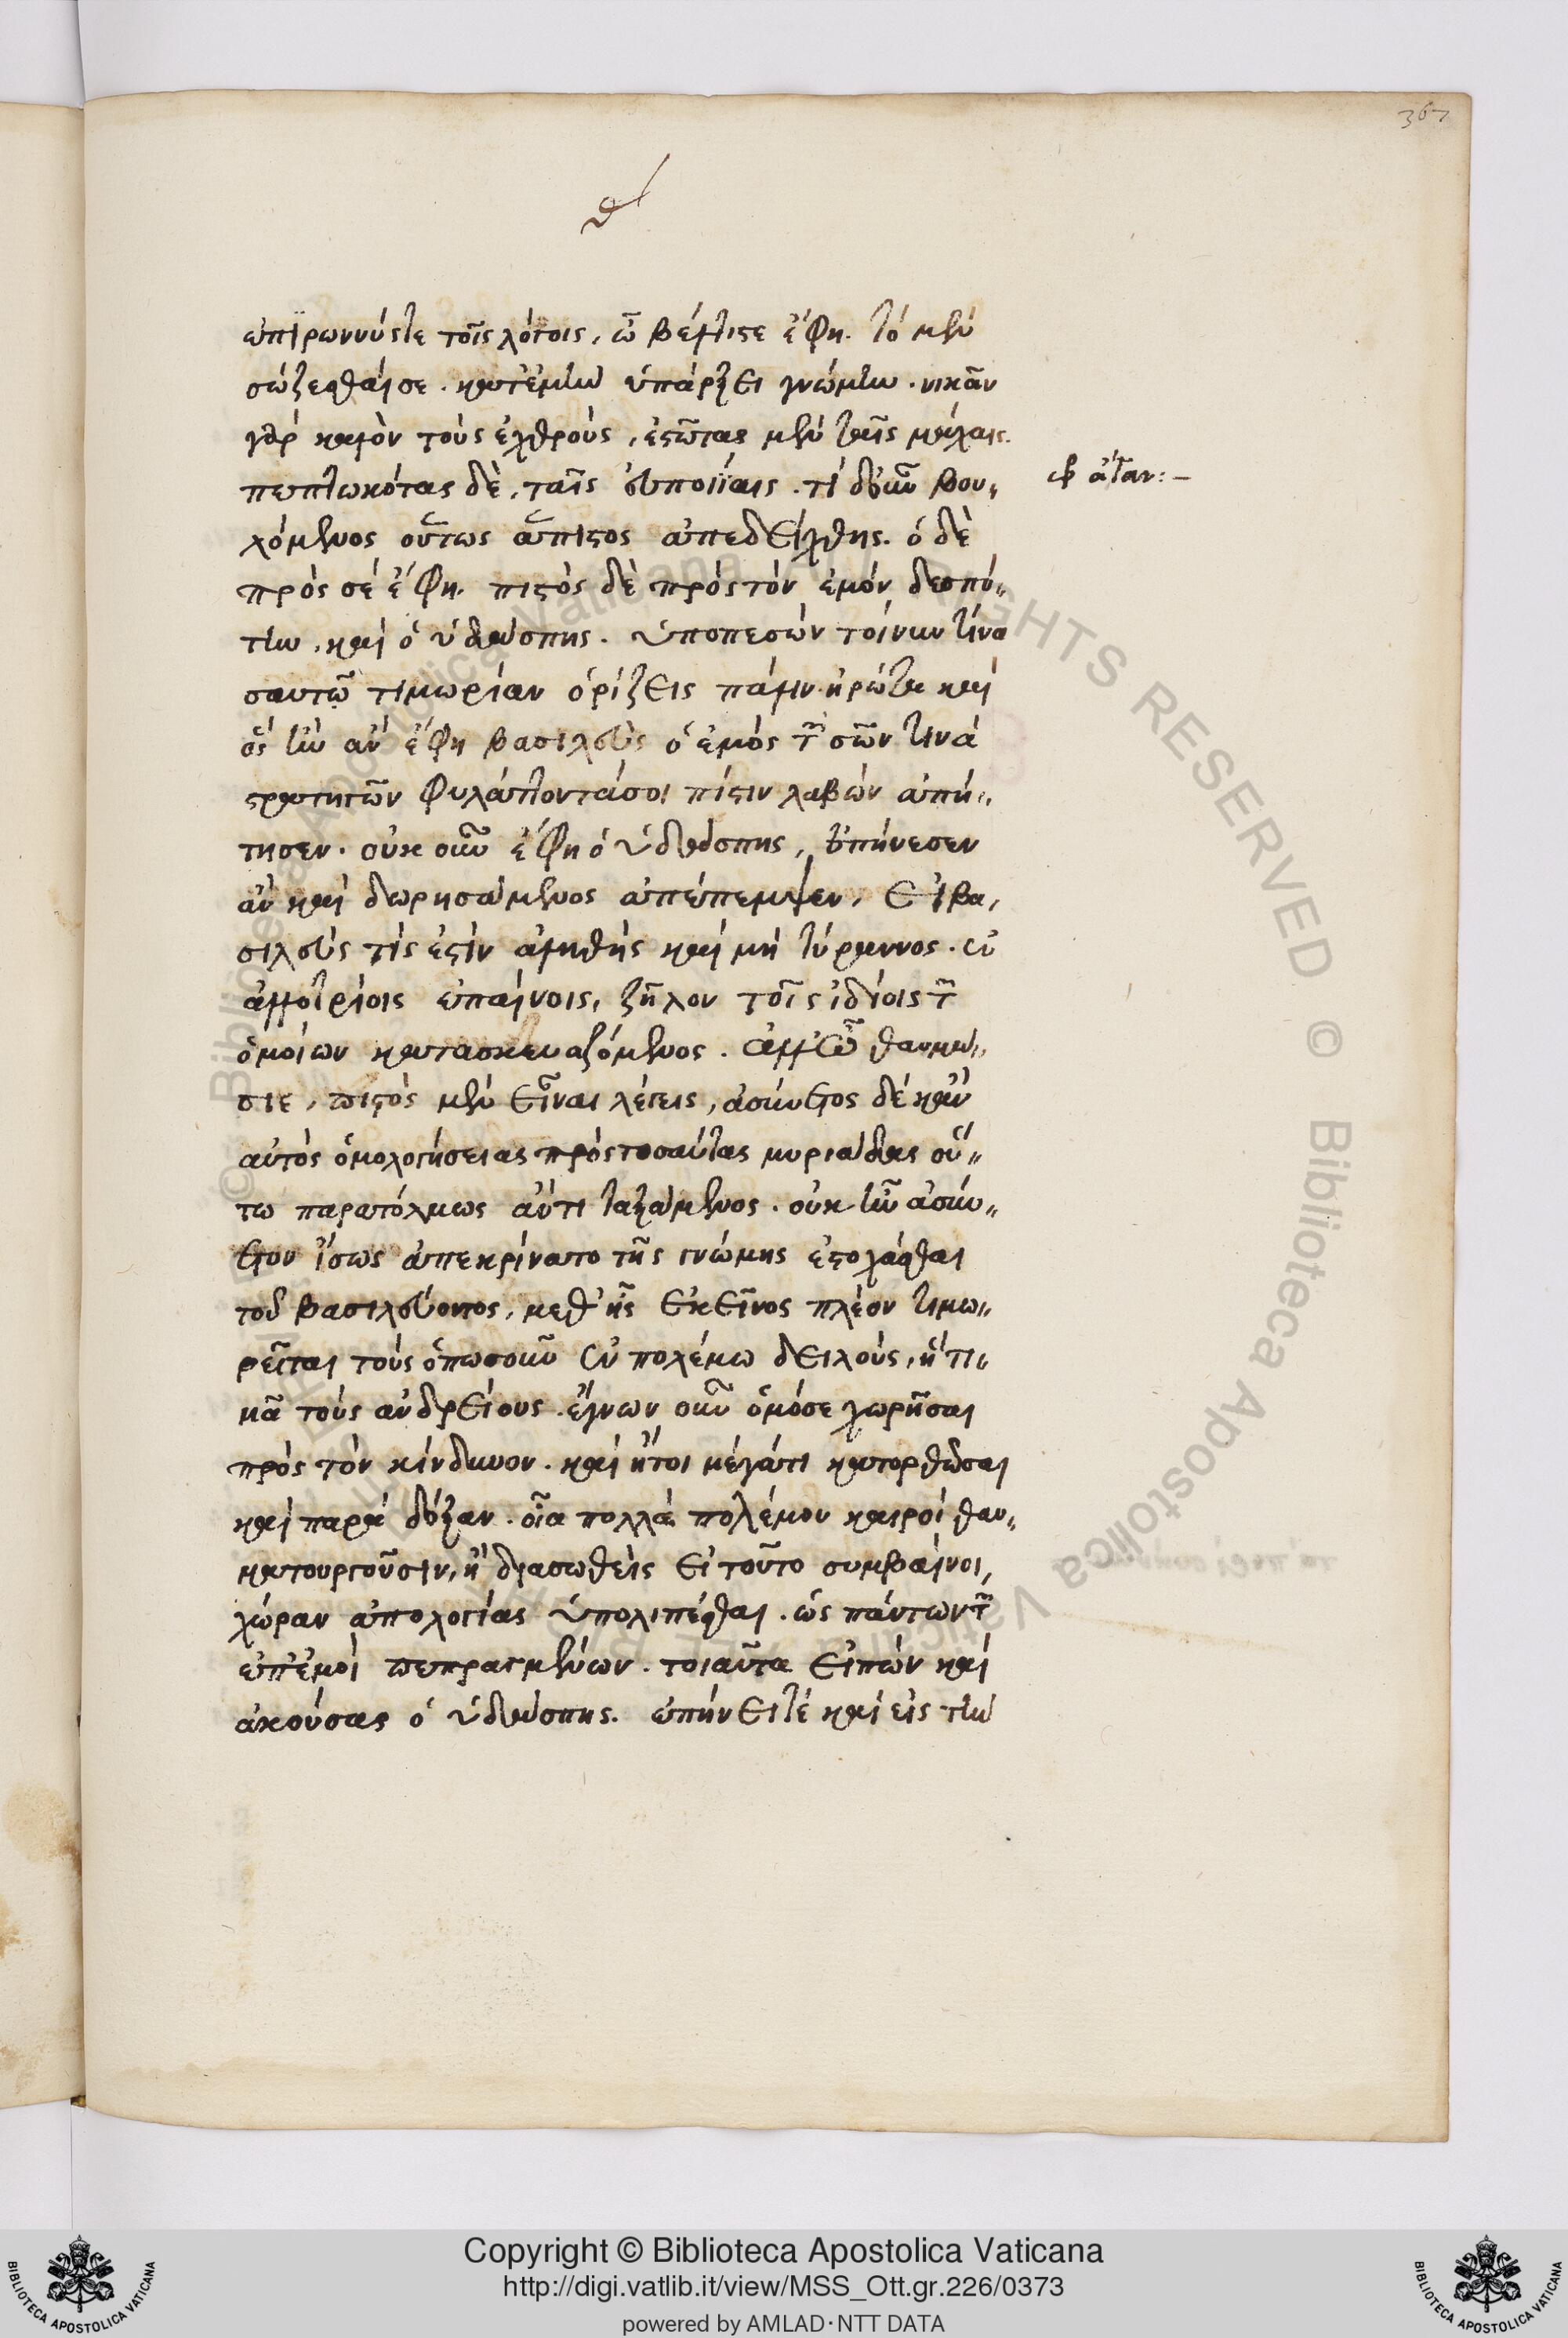 367
θ
ἐπιρωννύς τε τοῖς λόγοις, ὦ βέλτιστε ἔφη. τὸ μὲν
σώζεσθαί σε. κατ' ἐμὴν ὑπάρξει γνώμην. νικᾶν
γὰρ καλὸν τοὺς ἐχθροὺς, ἑστῶτας μὲν ταῖς μάχαις.
πεπτωκότας δὲ, ταῖς εὐποιΐαις. τί δ' οὖν βου,
λόμενος οὕτως ἄπιστος ἀπεδείχθης. ὁ δὲ
πρὸς σέ ἔφη. πιστὸς δὲ πρὸς τὸν ἐμὸν δεσπό„
την. καὶ ὁ ὑδάσπης. ὑποπεσὼν τοίνυν τίνα
σαυτῷ τιμωρίαν ὁρίζεις πάλιν ἠρώτα καὶ
ὃς ἣν ἂν ἔφη βασιλεὺς ὁ ἐμὸς τῶν σῶν τινὰ
στρατηγῶν φυλάττοντά σοι πίστιν λαβὼν ἀπή„
τησεν. οὐκ οὖν ἔφη ὁ ὑδάσπης, ἐπῄνεσεν
ἂν καὶ δωρησάμενος ἀπέπεμψεν, εἰ βα,
σιλεύς τίς ἐστὶν ἀληθὴς καὶ μὴ τύραννος. ἐν
ἀλλοτρίοις ἐπαίνοις, ζῆλον τοῖς ἰδίοις τῶν
ὁμοίων κατασκευαζόμενος. ἀλλ' ὦ θαυμά„
σιε, πιστὸς μὲν εἶναι λέγεις, ἀσύνετος δὲ κἂν
αὐτὸς ὁμολογήσειας πρὸς τοσαύτας μυριάδας οὕ„
τω παρατόλμως ἀντιταξάμενος. οὐκ ἦν ἀσύν„
ετον ἴσως ἀπεκρίνατο τῆς γνώμης ἐστοχάσθαι
τοῦ βασιλεύοντος, μεθ' ἧς ἐκεῖνος πλέον τιμω„
ρεῖται τοὺς ὁπωσοῦν ἐν πολέμω δειλούς, ἢ τι„
μᾶ τοὺς ἀνδρείους. ἔγνων οὖν ὁμόσε χωρῆσαι
πρὸς τὸν κίνδυνον. καὶ ἤτοι μέγά τι κατορθῶσαι
καὶ παρὰ δόξαν. οἷα πολλὰ πολέμου καιροὶ θαυ„
ματουργοῦσιν, ἢ διασωθεὶς εἰ τοῦτο συμβαίνοι,
χώραν ἀπολογίας ὑπολιπέσθαι. ὡς πάντων τῶν
ἐπ' ἐμοὶ πεπραγμένων. τοιαῦτα εἰπὼν καὶ
ἀκούσας ὁ ὑδάσπης. ἐπῄνει τέ καὶ εἰς τὴν
Copyright © Biblioteca Apostolica Vaticana
http://digi.vatlib.it/view/MSS_Ott.gr.226/0373
powered by AMLAD·NTT DATA